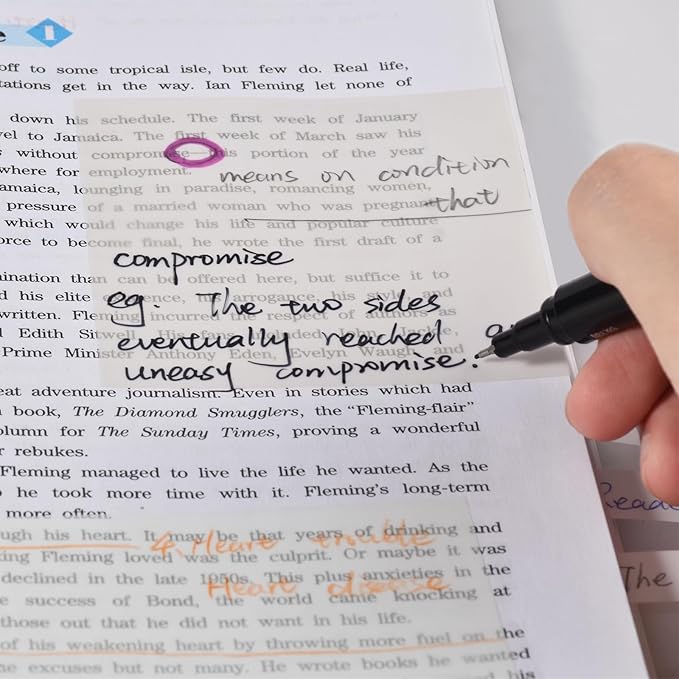 e 1
off to some tropical isle, but few do. Real life,
tations get in the way. Ian Fleming let none of
down his schedule. The first week of January
vel to Jamaica. The first week of March saw his
s without compromise—this portion of the year
where for employment.
means on condition
amaica, lounging in paradise, romancing women,
pressure of a married woman who was pregnant
that
which would change his life and popular culture
orce to become final, he wrote the first draft of a
compromise
ination than can be offered here, but suffice it to
eg. The two sides
d his elite arrogance, his style and
written. Fleming incurred the respect of authors as
eventually reached a
d Edith Sitwell. His fans included John
Prime Minister Anthony Eden, Evelyn Waugh, and
uneasy compromise.
eat adventure journalism. Even in stories which had
book, The Diamond Smugglers, the “Fleming-flair”
olumn for The Sunday Times, proving a wonderful
r rebukes.
Fleming managed to live the life he wanted. As the
he took more time with it. Fleming's long-term
more often.
ugh his heart. It may be that years of drinking and
4 Heart trouble
king Fleming loved was the culprit. Or maybe it was
declined in the late 1950s. This plus anxieties in the
Heart disease
e success of Bond, the world came knocking at
those out that he did not want in his life.
of his weakening heart by throwing more fuel on the
he excuses but not many. He wrote books he wanted
his
Reade
The